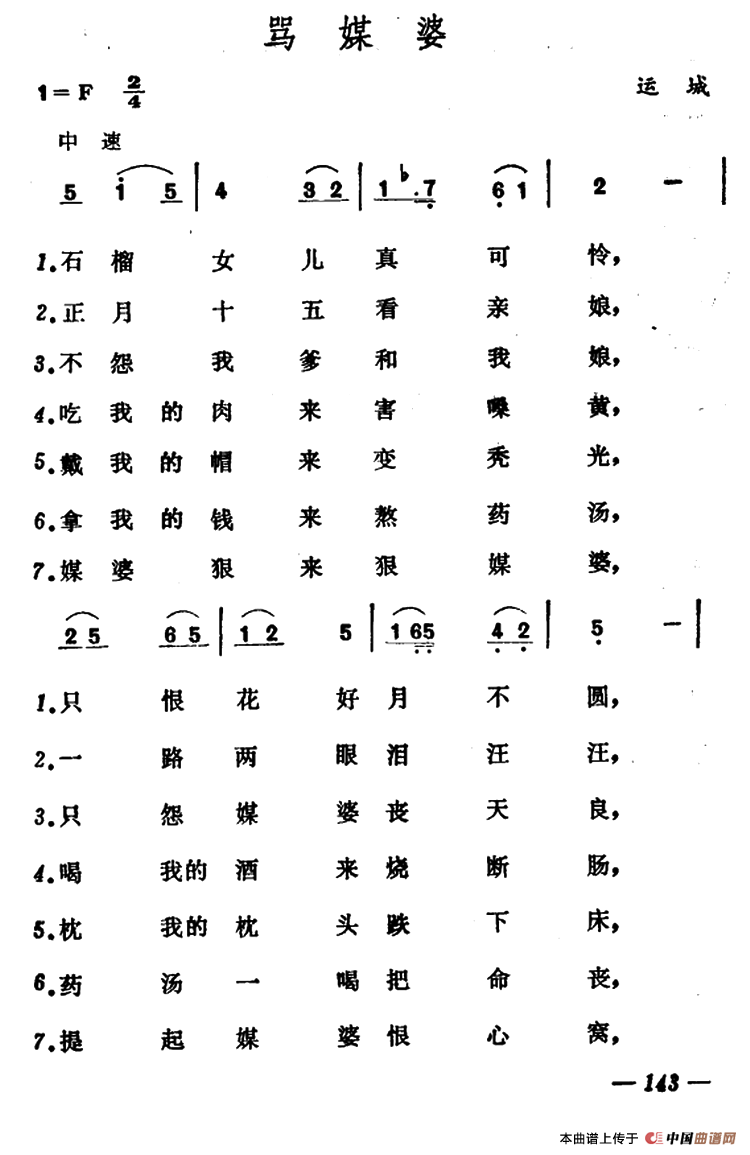 骂媒婆
1=F 2/4 运城
中速
5 i 5 | 4 3 2 | 1 ♭.7 6 1 | 2 — |
1.石榴女儿真可怜，
2.正月十五看亲娘，
3.不怨我爹和我娘，
4.吃我的肉来害嗓黄，
5.戴我的帽来变秃光，
6.拿我的钱来熬药汤，
7.媒婆狠来狠媒婆，
2 5 6 5 | 1 2 5 | 1 6 5 4 2 | 5 — |
1.只恨花好月不圆，
2.一路两眼泪汪汪，
3.只怨媒婆丧天良，
4.喝我的酒来烧断肠，
5.枕我的枕头跌下床，
6.药汤一喝把命丧，
7.提起媒婆恨心窝，
— 143 —
本曲谱上传于 中国曲谱网